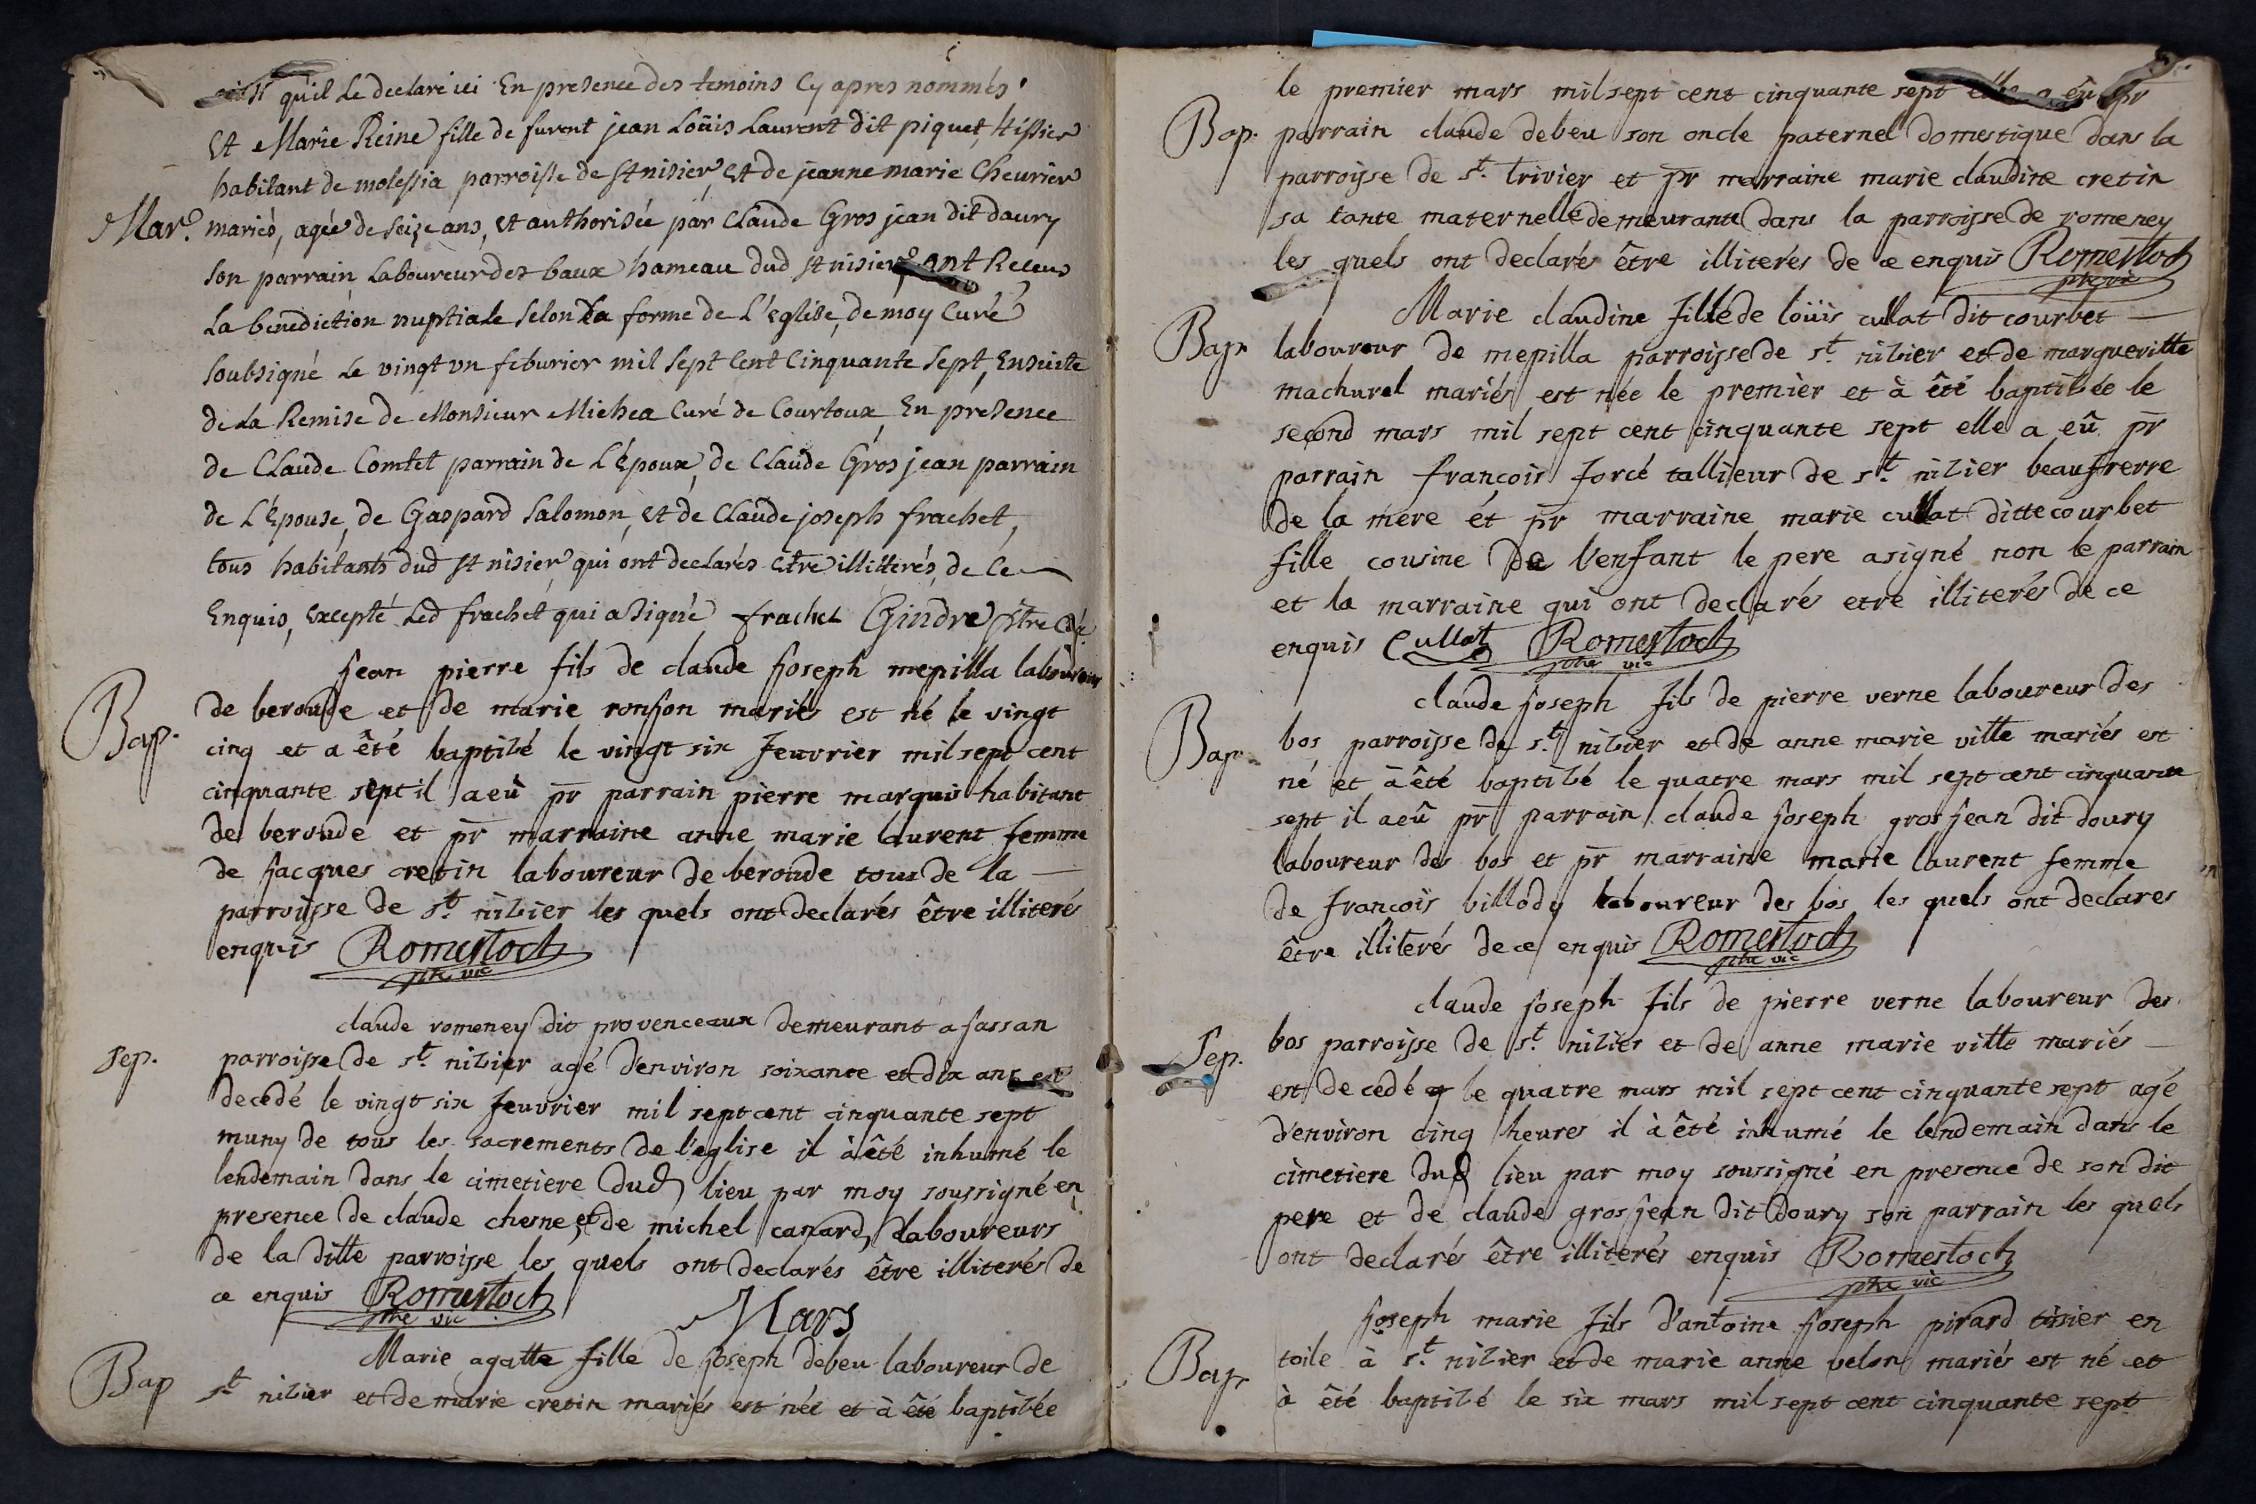 qu'il Le declare ici En presence des temoins Cy apres nommés
Et Marie Reine fille de furent jean Loüis Laurent dit piquet, tissier
habitant de molessia parroisse de St nisier, Et de jeanne marie Cheurier
Mar.e mariés, agée de seize ans, et authorisée par Claude Gros jean dit daury
son parrain Laboureur des baux hameau dud St nisier ont Receus
La benediction nuptiale selon La forme de L'Eglise, de moy Curé
soubsigné Le vingt vn feburier mil sept Cent Cinquante sept, Ensuitte
de La Remise de Monsieur Michea Curé de Courtoux, En presence
de Claude Comtet parrain de L'Époux, de Claude Gros jean parrain
de L'Épouse, de Gaspard Salomon, et de Claude joseph frachet,
tous habitants dud St nisier qui ont declarés Etre illitterés, de Ce
Enquis, Excepté Led frachet qui a signé frachet Gindre ptre Cúré
jean pierre fils de claude joseph mepilla laboureur
Bap. de beroude et de marie ronjon mariés est né le vingt
cinq et a êté baptisé le vingt six feuvrier mil sept cent
cinquante sept il a eû pr parrain pierre marquis habitant
de beroude et pr marraine anne marie laurent femme
de jacques cretin laboureur de beroude tous de la
parroisse de st. nizier les quels ont declarés être illiterés
enquis Romestoch
ptre vic
claude romeney dit provenceaux demeurant a jassan
Sep. parroisse de st. nizier agé d'environ soixante et dix ans est
decedé le vingt six feuvrier mil sept cent cinquante sept
muny de tous les sacrements de l'eglise il à êté inhumé le
lendemain dans le cimetiere dud lieu par moy soussigné en
presence de claude chesne et de michel canard laboureurs
de la ditte parroisse les quels ont declarés être illiterés de
ce enquis Romestoch
ptre vic
Mars
Marie agatte fille de joseph debeu laboureur de
Bap st nizier et de marie cretin mariés est née et à êté baptisée
le premier mars mil sept cent cinquante sept elle a eû pr
Bap. parrain claude debeu son oncle paternel domestique dans la
parroisse de st. trivier et pr marraine marie claudine cretin
sa tante maternelle demeurante dans la parroisse de romeney
les quels ont declarés être illiterés de ce enquis Romestoch
ptre vic
Marie claudine fille de loüis cullat dit courbet
Bap laboureur de mepilla parroisse de st. nizier et de margueritte
machurel mariés est née le premier et à êté baptisée le
second mars mil sept cent cinquante sept elle a eû pr
parrain françois forcé tallieur de st. nizier beaufrerre
de la mere et pr marraine marie cullat ditte courbet
fille cousine de l'enfant le pere a signé non le parrain
et la marraine qui ont declarés etre illiterés de ce
enquis Cullat Romestoch
ptre vic
claude joseph fils de pierre verne laboureur des
Bap bos parroisse de st. nizier et de anne marie vitte mariés est
né et à êté baptisé le quatre mars mil sept cent cinquante
sept il a eû pr parrain claude joseph gros jean dit doury
laboureur des bos et pr marraine marie laurent femme
de francois billody laboureur des bos les quels ont declares
être illiterés de ce enquis Romestoch
ptre vic
claude joseph fils de pierre verne laboureur des
Sep. bos parroisse de st. nizier et de anne marie vitte mariés
est decedé le quatre mars mil sept cent cinquante sept agé
d'environ cinq heures il à êté inhumé le lendemain dans le
cimetiere dud lieu par moy soussigné en presence de son dit
pere et de claude gros jean dit doury son parrain les quels
ont declarés être illiterés enquis Romestoch
ptre vic
joseph marie fils d'antoine joseph pirard tisier en
Bap toile à st. nizier et de marie anne velon mariés est né et
à êté baptisé le six mars mil sept cent cinquante sept